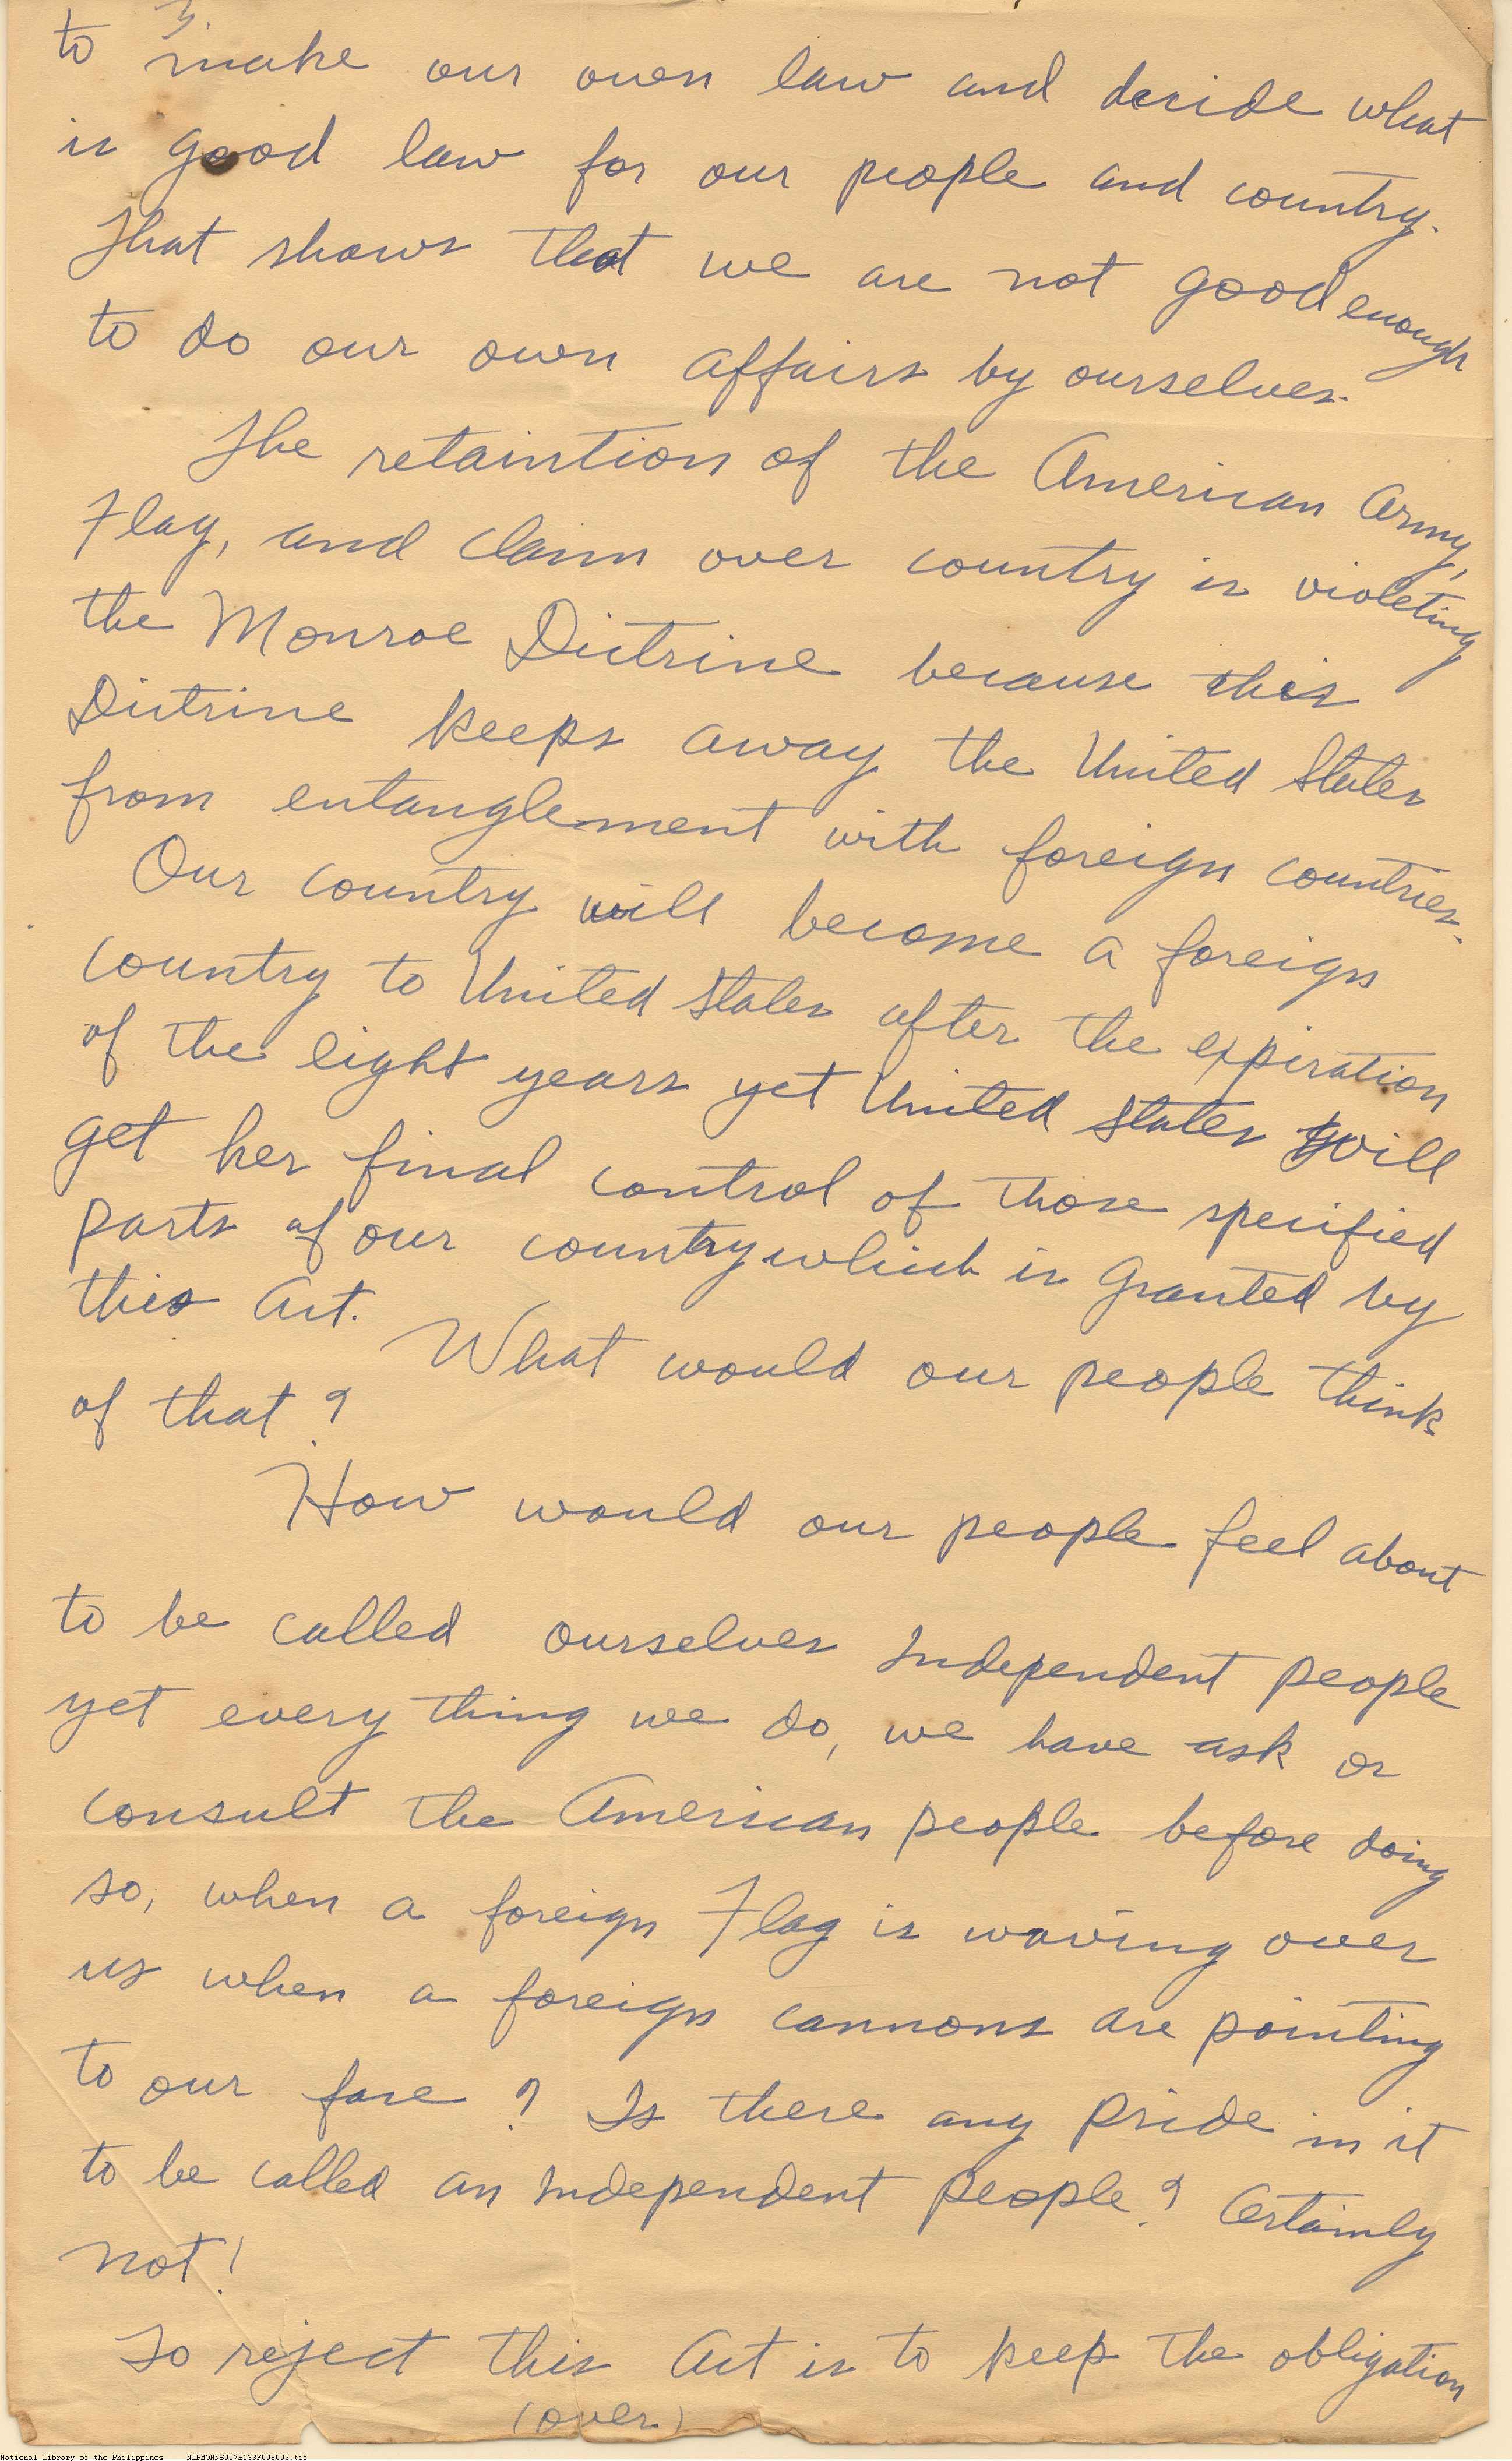 3.
to make our own law and decide what
is good law for our people and country.
That shows that we are not good enough
to do our own affairs by ourselves.
The retaintion of the American Army,
Flag, and claim over country is violeting
the Monroe Dictrine because this
Dictrine keeps away the United States
from entanglement with foreign countries.
Our country will become a foreign
country to United States after the expiration
of the eight years yet United States will
get her final control of those specified
parts of our country which is granted by
this Act. What would our people think
of that?
How would our people feel about
to be called ourselves Independent people
yet every thing we do, we have ask or
consult the American people before doing
so, when a foreign Flag is waving over
us when a foreign cannons are pointing
to our face? Is there any pride in it
to be called an Independent people? Certainly
not!
To reject this Act is to keep the obligation
(over.)
National Library of the Philippines NLPMQMNS007B133F005003.tif